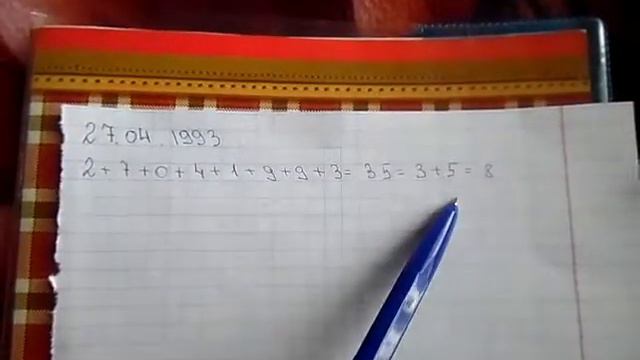 27.04.1993
2+7+0+4+1+9+9+3=35=3+5=8